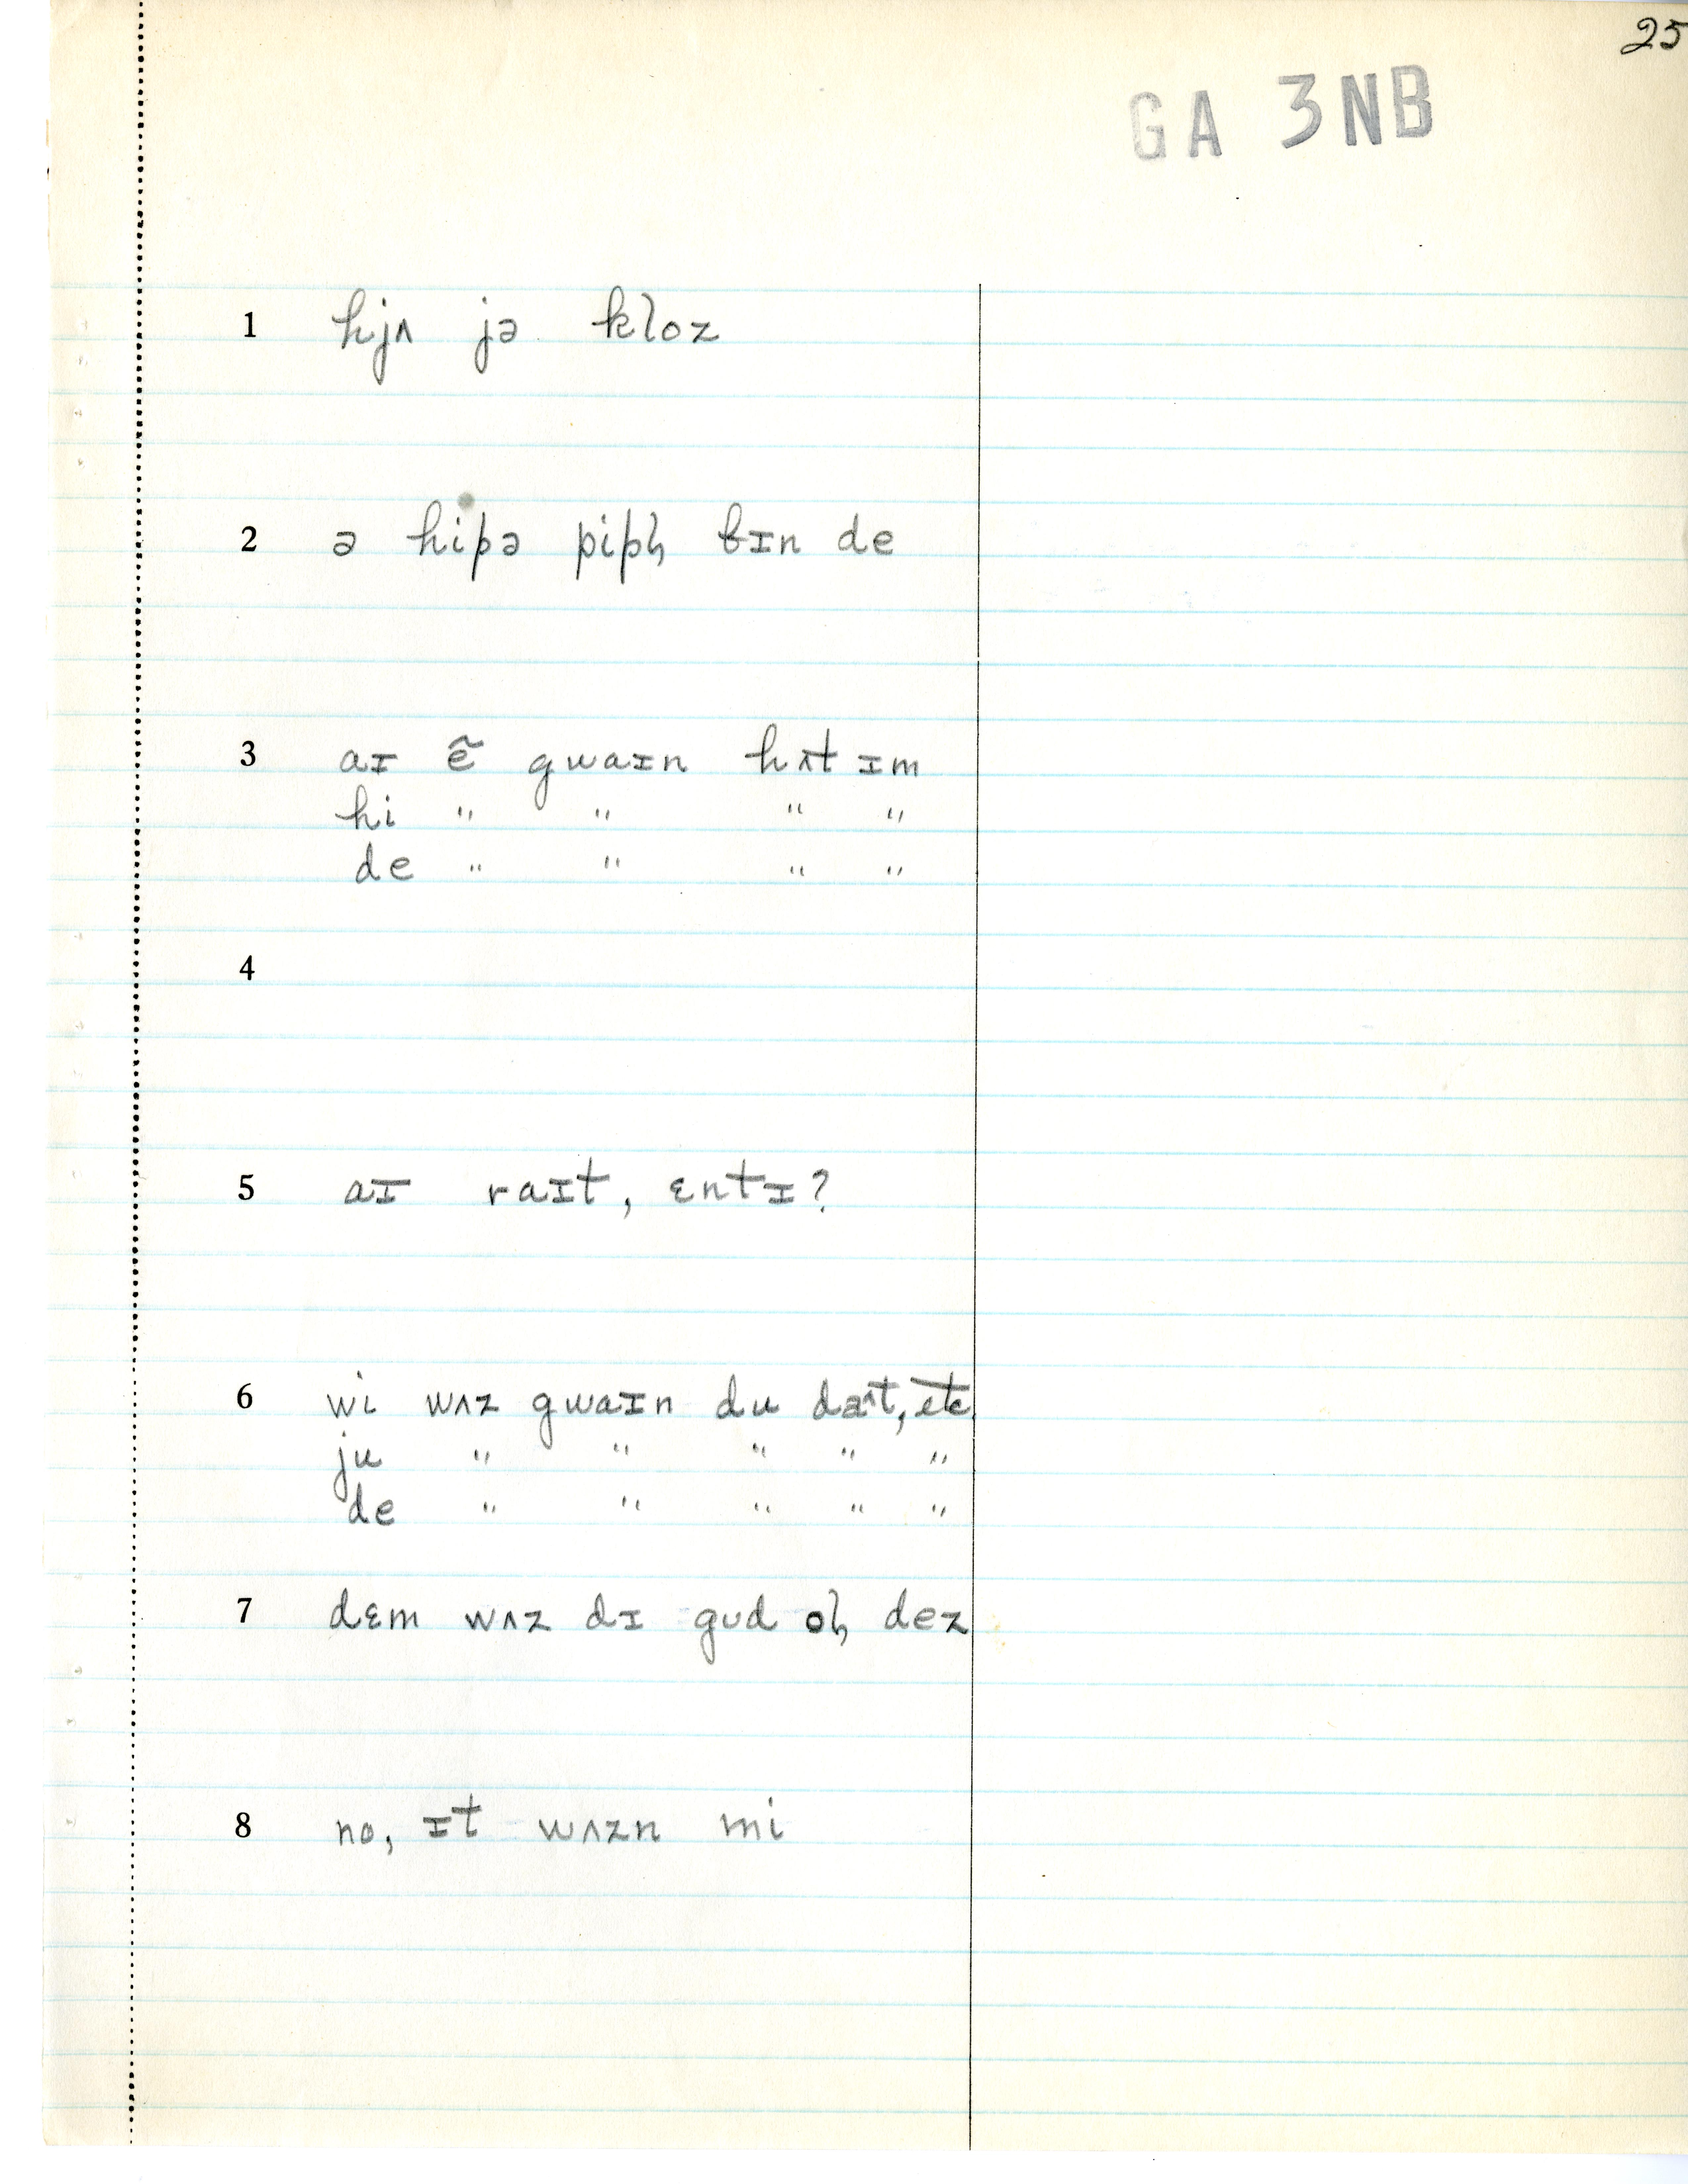 25
GA 3NB
1 hjʌ jə kloz
2 ə hipə pipl̩ bɪn de
3 aɪ ẽ gwaɪn hʌt ɪm
hi " " " "
de " " " "
4
5 aɪ raɪt, ɛntɪ?
6 wi wʌz gwaɪn du daˆt, etc
ju " " " " "
de " " " " "
7 dɛm wʌz dɪ gud ol̩ dez
8 no, ɪt wʌzn mi